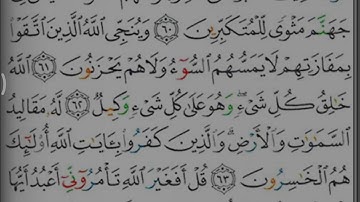 جَهَنَّمَ مَثْوًى لِّلْمُتَكَبِّرِينَ ٦٠ وَيُنَجِّى ٱللَّهُ ٱلَّذِينَ ٱتَّقَوْا۟
بِمَفَازَتِهِمْ لَا يَمَسُّهُمُ ٱلسُّوٓءُ وَلَا هُمْ يَحْزَنُونَ ٦١ ٱللَّهُ
خَٰلِقُ كُلِّ شَىْءٍ ۖ وَهُوَ عَلَىٰ كُلِّ شَىْءٍ وَكِيلٌ ٦٢ لَّهُۥ مَقَالِيدُ
ٱلسَّمَٰوَٰتِ وَٱلْأَرْضِ ۗ وَٱلَّذِينَ كَفَرُوا۟ بِـَٔايَٰتِ ٱللَّهِ أُو۟لَٰٓئِكَ
هُمُ ٱلْخَٰسِرُونَ ٦٣ قُلْ أَفَغَيْرَ ٱللَّهِ تَأْمُرُوٓنِّىٓ أَعْبُدُ أَيُّهَا